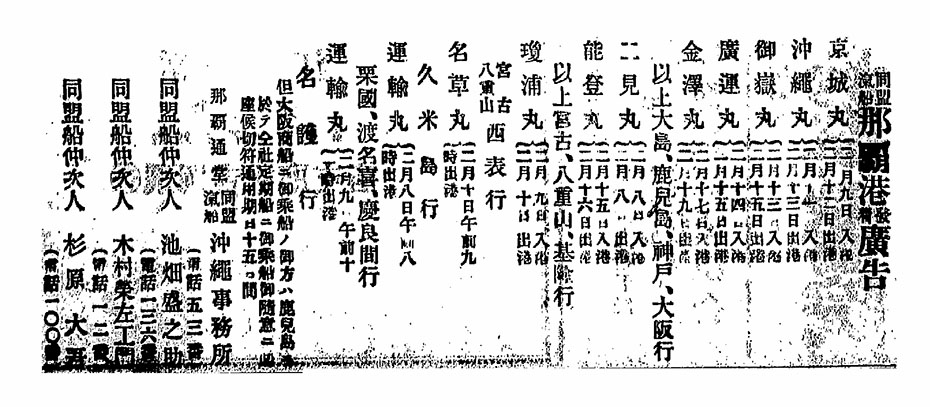 同盟汽船那覇港發着廣告
京城丸 二月九日入港 二月十二日出港
沖繩丸 出港
御嶽丸 二月十三日入港 二月十五日出港
廣運丸 二月十四日入港 二月十五日出港
金澤丸 二月十七日入港 二月十九日出港
以上大島、鹿兒島、神戸、大阪行
二見丸 二月八日入港 二月八日出港
能登丸 二月十五日入港 二月十六日出港
以上宮古、八重山、基隆行
瓊浦丸 二月九日入港 二月十日出港
宮古八重山西表行
名草丸 二月十日午前九時出港
久米島行
運輸丸 二月八日午前八時出港
粟國、渡名喜、慶良間行
運輸丸 二月九日午前十時出港
名護行
但大阪商船ニ御乘船ノ御方ハ鹿兒島
於テ仝社定期船ニ御乘船御隨意ニ
座候切符通用期日十五日間
那覇通堂 同盟汽船沖繩事務所
(電話五三番)
同盟船仲次人 池畑盛之助
(電話一三六番)
同盟船仲次人 木村榮左工門
(電話一二番)
同盟船仲次人 杉原大吾
(電話一〇〇番)